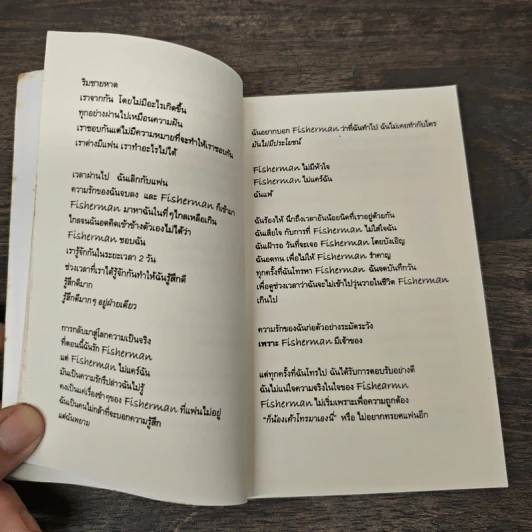 ริมชายหาด
เราจากกัน โดยไม่มีอะไรเกิดขึ้น
ทุกอย่างผ่านไปเหมือนความฝัน
เราชอบกันแต่ไม่มีความหมายที่จะทำให้เราชอบกัน
เราต่างมีแฟน เราทำอะไรไม่ได้
เวลาผ่านไป ฉันเลิกกับแฟน
ความรักของฉันจบลง และ Fisherman ก็เข้ามา
Fisherman มาหาฉันในที่ๆไกลเหลือเกิน
ไกลจนฉันอดคิดเข้าข้างตัวเองไม่ได้ว่า
Fisherman ชอบฉัน
เรารู้จักกันในระยะเวลา 2 วัน
ช่วงเวลาที่เราได้รู้จักกันทำให้ฉันรู้สึกดี
รู้สึกดีมาก
รู้สึกดีมากๆ อยู่ฝ่ายเดียว
การกลับมาสู่โลกความเป็นจริง
ที่ตอนนี้ฉันรัก Fisherman
แต่ Fisherman ไม่แคร์ฉัน
มันเป็นความรักรึเปล่าฉันไม่รู้
คงเป็นแค่เรื่องขำๆของ Fisherman ที่แฟนไม่อยู่
ฉันเป็นคนไม่กล้าที่จะบอกความรู้สึก
แต่ฉันพยาม
ฉันอยากบอก Fisherman ว่าที่ฉันทำไป ฉันไม่เคยทำกับใคร
มันไม่มีประโยชน์
Fisherman ไม่มีหัวใจ
Fisherman ไม่แคร์ฉัน
ฉันแพ้
ฉันร้องไห้ นึกถึงเวลาอันน้อยนิดที่เราอยู่ด้วยกัน
ฉันเสียใจ กับการที่ Fisherman ไม่ใส่ใจฉัน
ฉันเฝ้ารอ วันที่จะเจอ Fisherman โดยบังเอิญ
ฉันอดทน เพื่อไม่ให้ Fisherman รำคาญ
ทุกครั้งที่ฉันโทรหา Fisherman ฉันจดบันทึกวัน
เพื่อดูช่วงเวลาว่าฉันจะไม่เข้าไปวุ่นวายในชีวิต Fisherman
เกินไป
ความรักของฉันก่อตัวอย่างระมัดระวัง
เพราะ Fisherman มีเจ้าของ
แต่ทุกครั้งที่ฉันโทรไป ฉันได้รับการตอบรับอย่างดี
ฉันไม่แน่ใจความจริงในใจของ Fishearmn
Fisherman ไม่เริ่มเพราะเพื่อความถูกต้อง
"ก็น้องเค้าโทรมาเองนี่" หรือ ไม่อยากทรยศแฟนอีก